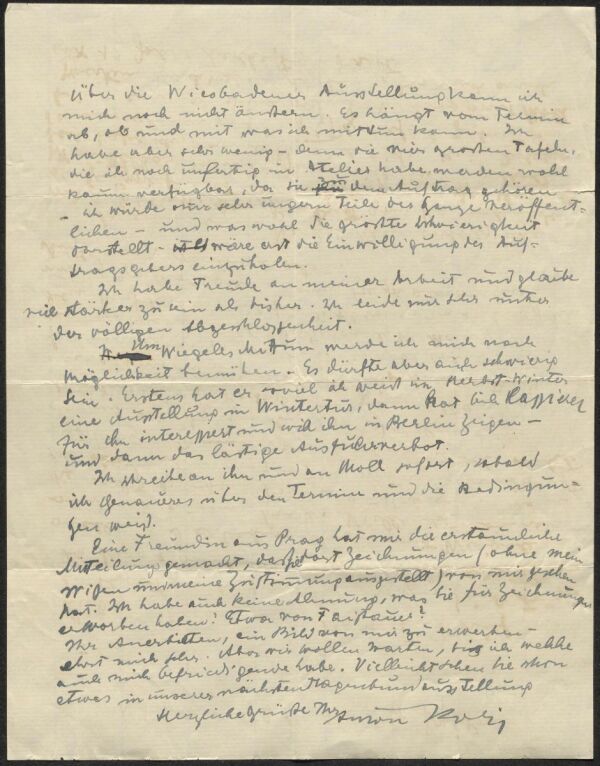 Über die Wiesbadener Ausstellung kann ich
mich noch nicht äussern. Es hängt vom Termin
ab, ob und mit was ich mittun kann. Ich
habe aber sehr wenig – denn die vier grossen Tafeln,
die ich noch unfertig im Atelier habe werden wohl
kaum verfügbar, da sie zu dem Auftrag gehören
– ich würde nur sehr ungern Teile des Ganze veröffent-
lichen – und was wohl die grösste Schwierigkeit
darstellt – wäre erst die Einwilligung des Auf-
tragsgebers einzuholen.
Ich habe Freude an meiner Arbeit und glaube
viel stärker zu sein als bisher. Ich leide nur sehr unter
der völligen Abgeschlossenheit.
Um Wiegeles Mittun werde ich mich nach
Möglichkeit bemühen. Es dürfte aber auch schwierig
sein. Erstens hat er soviel ich weiss im Herbst-Winter
eine Ausstellung in Wintertur, dann hat sich Cassirer
für ihn interessiert und will ihn in Berlin zeigen –
und dann das lästige Ausfuhrverbot.
Ich schreibe an ihn und an Moll sofort, sobald
ich genaueres über den Termine und die Bedingun-
gen weiss.
Eine Freundin aus Prag hat mir die erstaunliche
Mitteilung gemacht, dass sie dort Zeichnungen (ohne mein
Wissen und meine Zustimmung ausgestellt) von mir gesehen
hat. Ich habe auch keine Ahnung, was Sie für Zeichnungen
erworben haben? Etwa von Faistauer?
Ihr Anerbieten, ein Bild von mir zu erwerben
ehrt mich sehr. Aber wir wollen warten, bis ich welche
auch mich befriedigende habe. Vielleicht sehen Sie schon
etwas in unserer nächsten Hagenbundausstellung
Herzliche Grüsse Ihr Anton Kolig